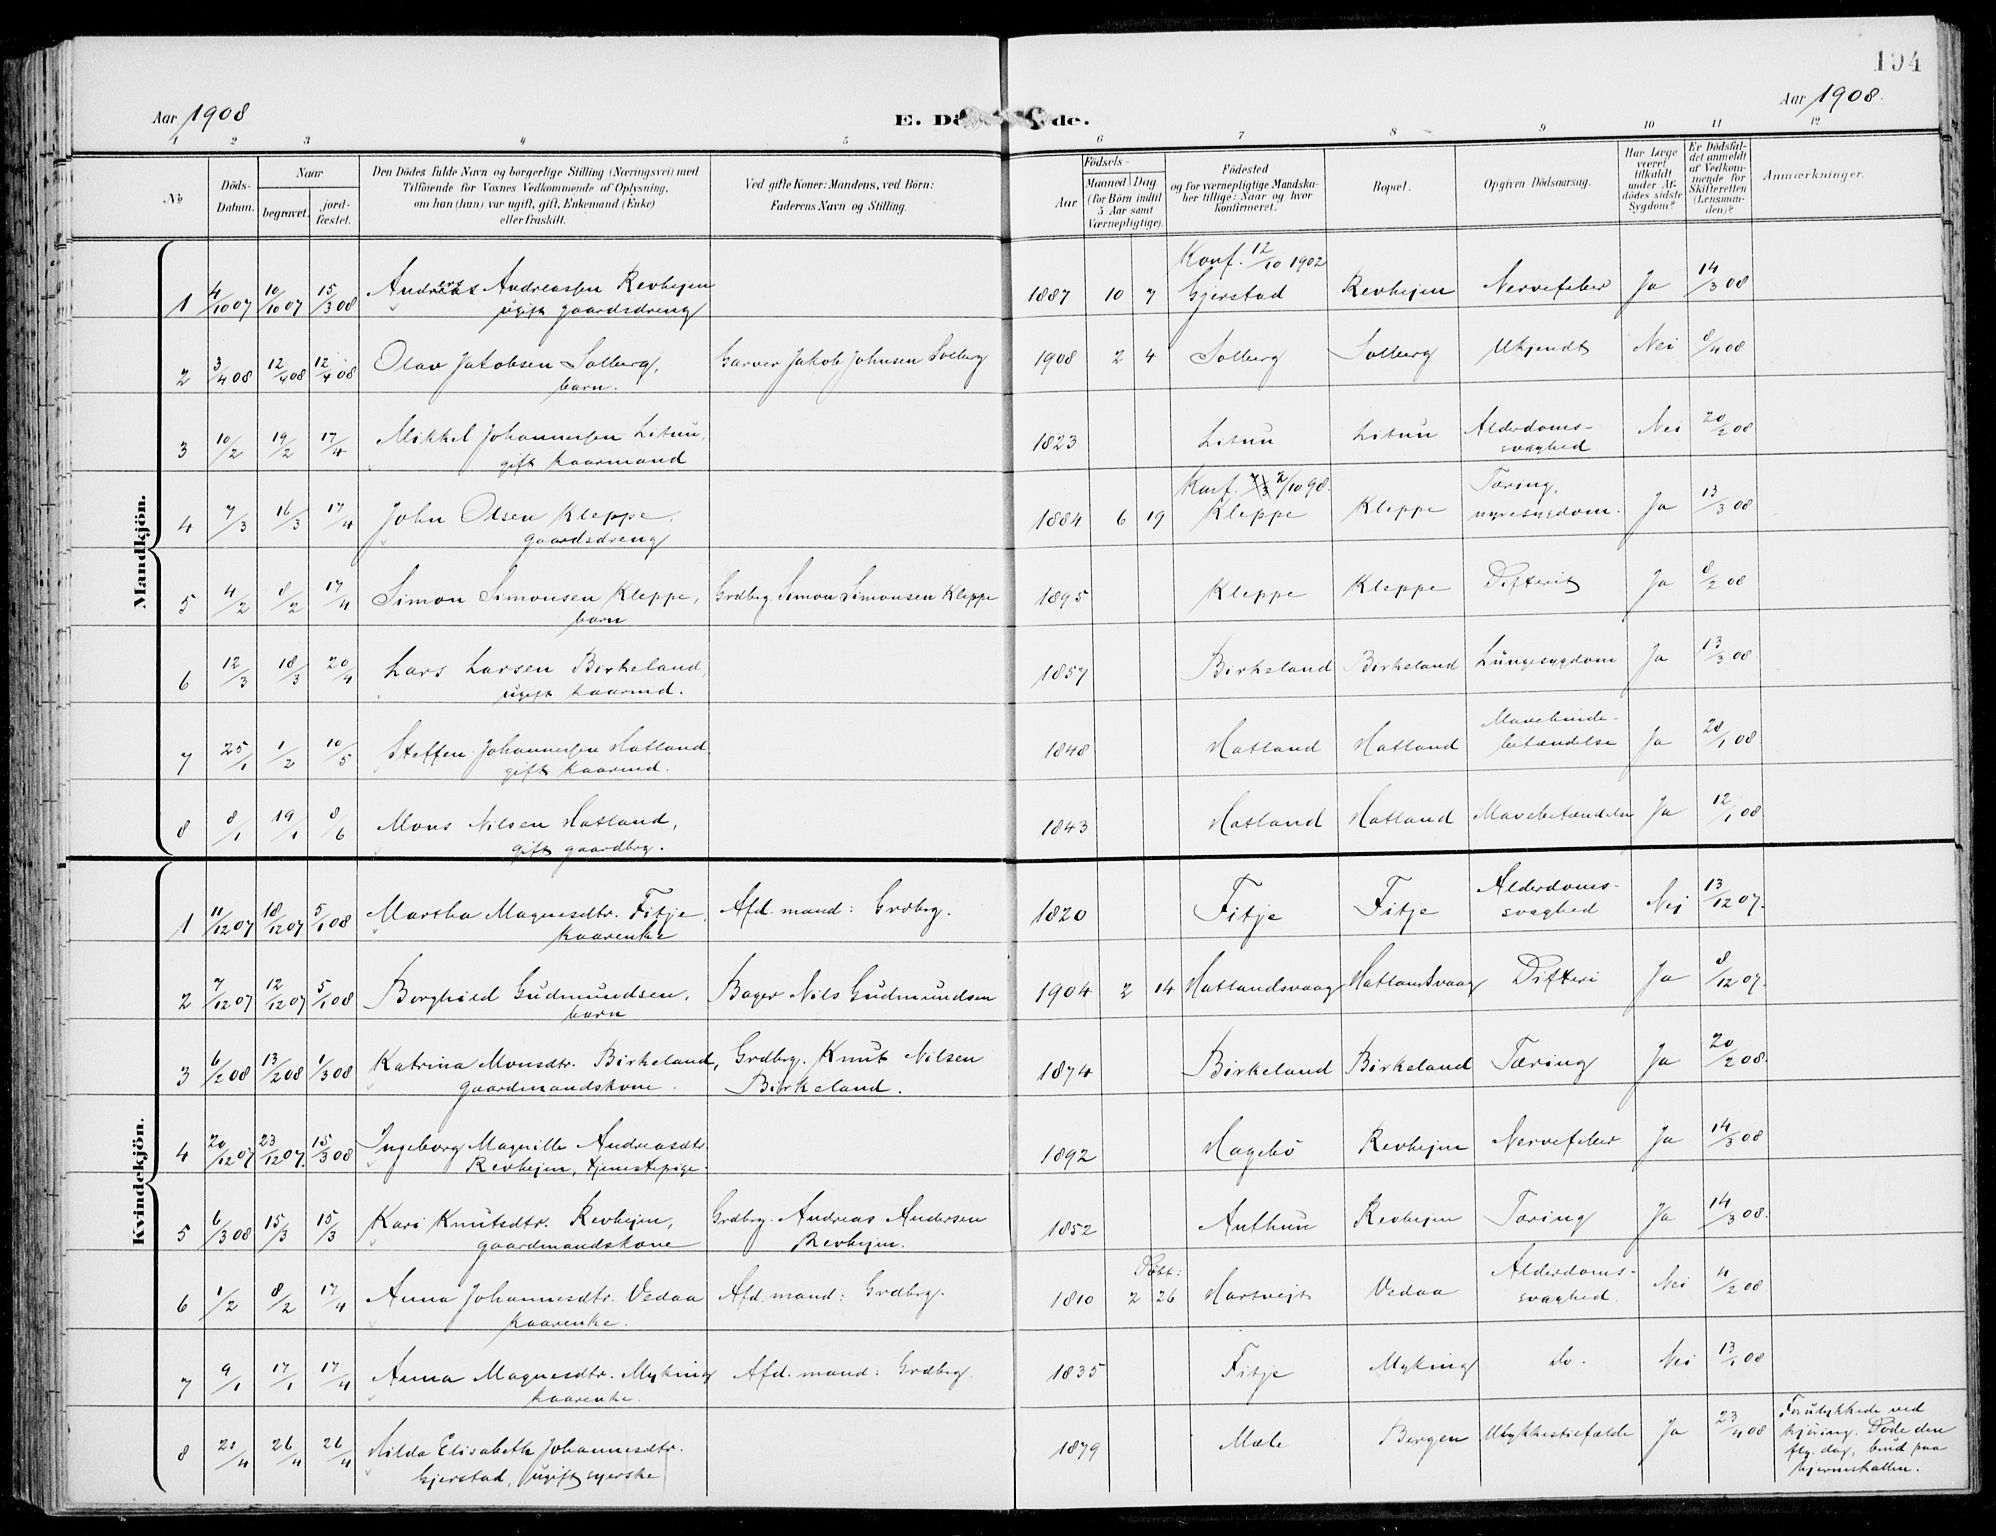 194
Aar 1908
Aar 1908.
E. Dö de.
1 2 3 4 5 6 7 8 9 10 11 12
No
Döds-Datum.
Naar
begravet.
jord-fæstet.
Den Dödes fulde Navn og borgerlige Stilling (Næringsvei) med
Tilföiende för Voxnes Vedkommende af Oplysning,
om han (hun) var ugift, gift, Enkemand (Enke)
eller fraskilt.
Ved gifte Koner: Mandens, ved Börn:
Faderens Navn og Stilling.
Födsels-
Aar
Maaned Dag
(for Börn indtil
5 Aar samt
Værnepligtige).
Födested
og for værnepligtige Mandska-
ber tillige: Naar og hvor
konfirmeret.
Bopæl.
Opgiven Dödsaarsag.
Har Læge
været
tilkaldt
under Af-
dödes sidste
Sygdom?
Er Dödsfal-
det anmeldt
af Vedkom-
mende for
Skifteretten
(Lensman-
den)?
Anmærkninger.
Mandkjön.
Konf. 12/10 1902
1 4/10 07 10/10 07 15/3 08 Andreas Andreassen Revhejen 1887 10 7 Gjerstad Revhejen Nervefeber Ja 14/3 08
ugift gaardsdreng
2 3/4 08 12/4 08 12/4 08 Olav Jakobsen Solberg, Garver Jakob Johnsen Solberg 1908 2 4 Solberg Solberg Ukjendt Nei 8/4 08
barn.
3 10/2 19/2 17/4 Mikkel Johannessen Litun, 1823 Litun Litun Alderdoms- Nei 20/2 08
gift kaarmand svaghed
Konf. 2/10 98. Tæring,
4 7/3 16/3 17/4 John Olsen Kleppe, 1884 6 19 Kleppe Kleppe nyresygdom. Ja 13/3 08
gaardsdreng
5 4/2 8/2 17/4 Simon Simonsen Kleppe, Grdbrg. Simon Simonsen Kleppe 1895 Kleppe Kleppe Difterit Ja 8/2 08
barn
6 12/3 18/3 20/4 Lars Larsen Birkeland, 1857 Birkeland Birkeland Lungesygdom Ja 13/3 08
ugift kaarmd.
7 25/1 1/2 10/5 Steffen Johannessen Hatland. 1848 Hatland Hatland Mavehinde- Ja 28/1 08
gift kaarmd. betændelse
8 8/1 19/1 8/6 Mons Nilsen Hatland, 1843 Hatland Hatland Mavebetændelse Ja 12/1 08
gift gaardbrg.
Kvindekjön.
1 11/12 07 18/12 07 5/1 08 Martha Magnesdtr. Fitje, Afd. mand: Grdbrg. 1820 Fitje Fitje Alderdoms- Nej 13/12 07.
kaarenke svaghed
2 7/12 07 12/12 07 5/1 08 Borghild Gudmundsen, Bager Nils Gudmundsen 1904 2 14 Hatlandsvaag Hatlandsvaag Difteri Ja 8/12 07.
barn
3 6/2 08 13/2 08 1/3 08 Katrina Monsdtr. Birkeland, Grdbrg. Knut Nilsen 1874 Birkeland Birkeland Tæring Ja 20/2 08.
gaardmandskone. Birkeland.
4 20/12 07 23/12 07. 15/3 08 Ingeborg Magnille Andreasdtr. 1892 Hagebö Revhejen Nervefeber Ja 14/3 08
Revhejen, tjenestepige.
5 6/3 08 15/3 15/3 Kari Knutsdtr. Revhejen, Grdbrg. Andreas Andersen 1852 Anthun Revhejen Tæring Ja 14/3 08.
gaardmandskone Revhejen.
Döbt:
6 1/2 8/2 17/4 Anna Johannesdtr. Vedaa Afd. mand: Grdbrg. 1810 2 26 Hartvejt Vedaa Alderdoms- Nei 4/2 08
kaarenke. svaghed.
7 9/1 17/1 17/4 Anna Magnesdtr. Myking Afd. mand: Grdbrg. 1835 Fitje Myking Do. Nei 13/1 08
kaarenke.
8 26/4 26/4 Hilda Elisabeth Johannesdtr. 1879 Mæle Bergen Ulykkestilfælde Ja 23/4 08
Gjerstad, ugift syerske
Forulykkede ved
kjöring. Döde den
flg. dag, brud paa
hjerneskallen.